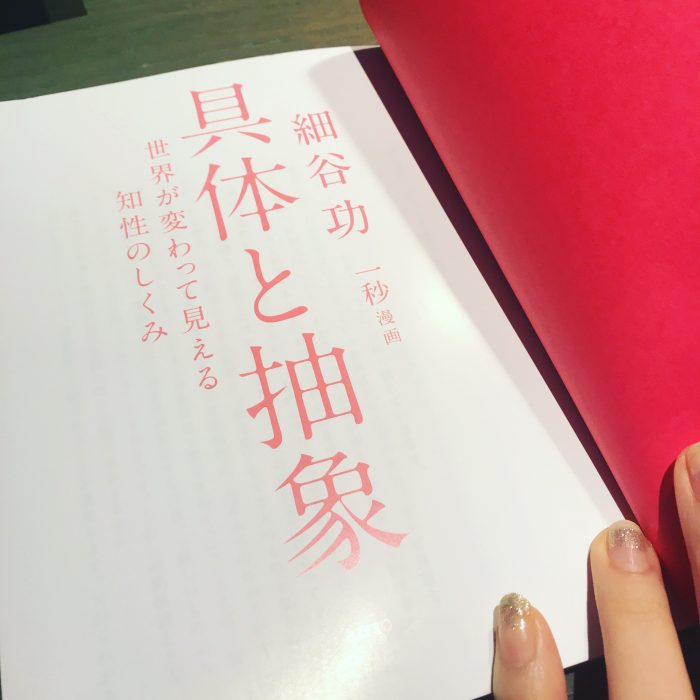 細谷功
一秒 漫画
具体と抽象
世界が変わって見える
知性のしくみ